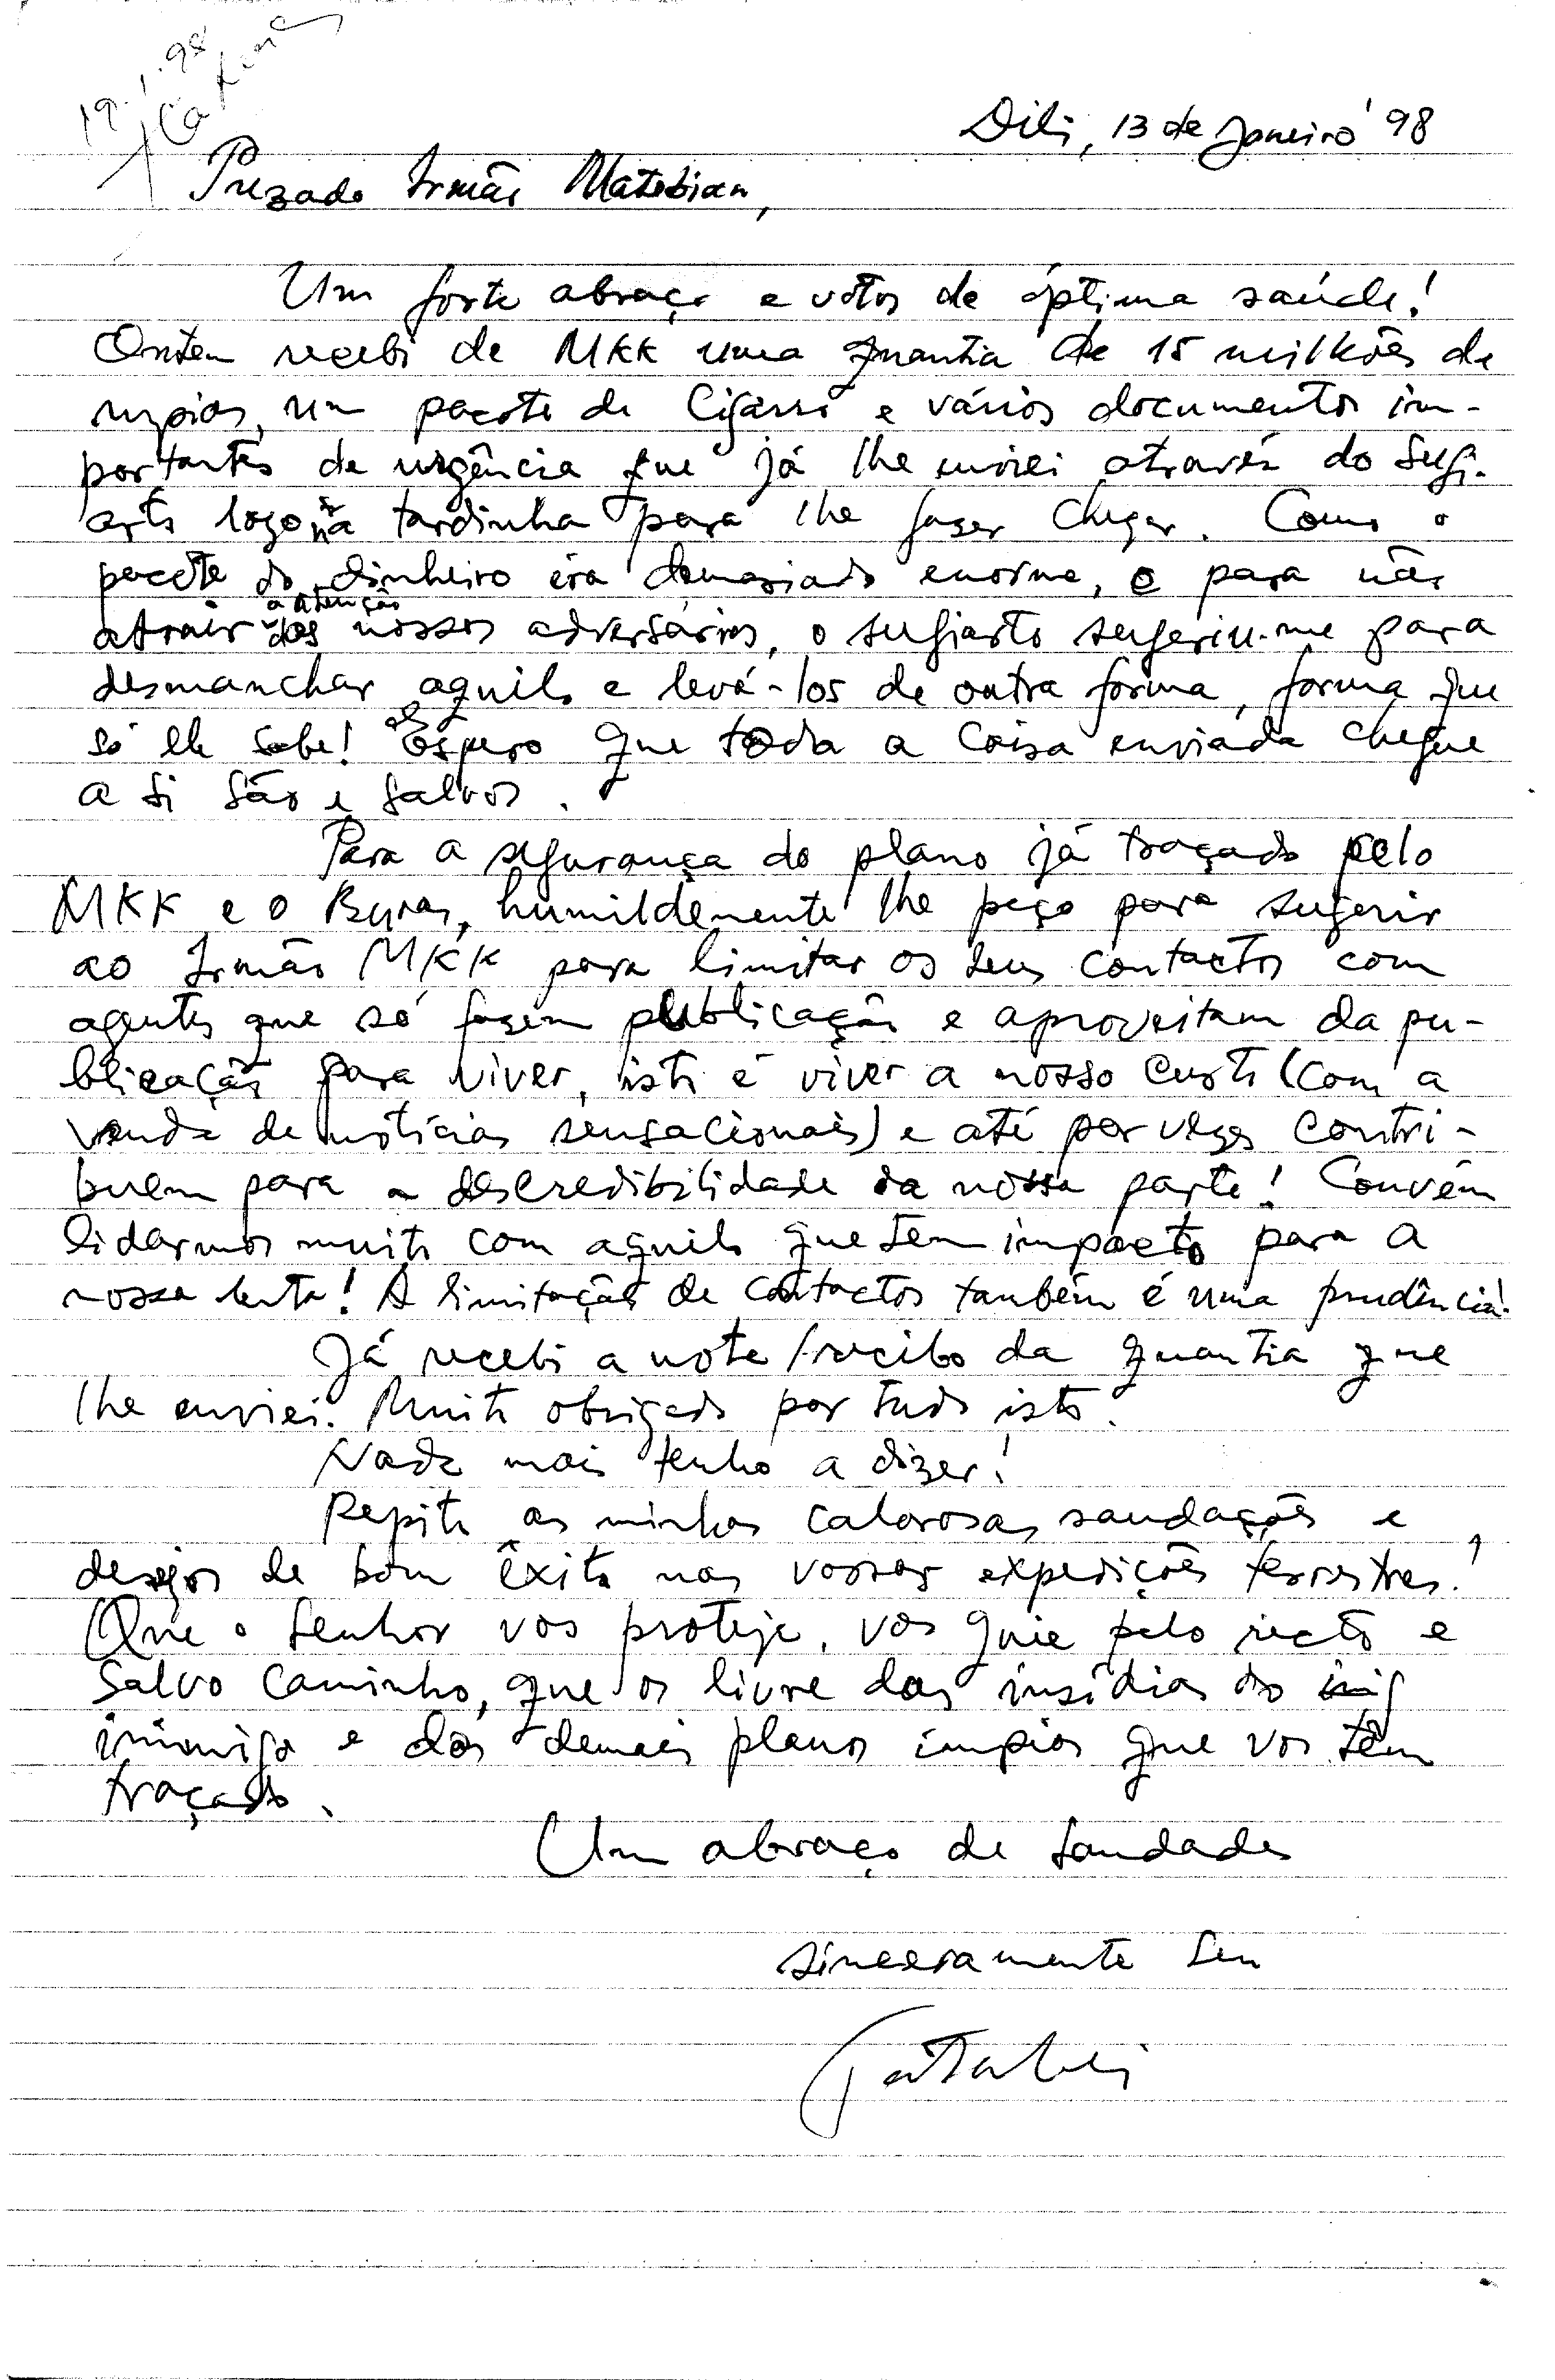 19.1.98
Dili, 13 de Janeiro '98
Prezado Irmão Matebian,
Um forte abraço e votos de óptima saúde!
Ontem recebi de MKK uma quantia de 15 milhões de
rupias, um pacote de Cigarro e vários documentos im-
portantes de urgência que já lhe enviei através do Sugi-
arto logo na tardinha para lhe fazer chegar. Como o
pacote do dinheiro era demasiado enorme, e para não
atrair a atenção dos nossos adversários, o Sugiarto sugeriu-me para
desmanchar aquilo e levá-los de outra forma, forma que
só ele sabe! Espero que toda a coisa enviada chegue
a si são e salvos.
Para a segurança do plano já traçado pelo
MKK e o Buras, humildemente lhe peço para sugerir
ao Irmão MKK para limitar os seus contactos com
agentes que só fazem publicação e aproveitam da pu-
blicação para viver, isto é viver a nosso custo (com a
venda de notícias sensacionais) e até por vezes contri-
buem para a descredibilidade da nossa parte! Convém
lidarmos muito com aquilo que tem impacto para a
nossa luta! A limitação de contactos também é uma prudência!
Já recebi a nota/recibo da quantia que
lhe enviei. Muito obrigado por tudo isto.
Nada mais tenho a dizer!
Repito as minhas calorosas saudações e
desejos de bom êxito nas vossas expedições terrestres!
Que o Senhor vos proteje, vos guie pelo recto e
Salvo Caminho, que os livre das insídias do inig
inimigo e dos demais planos ímpios que vos têm
traçado.
Um abraço de Saudades
Sinceramente Seu